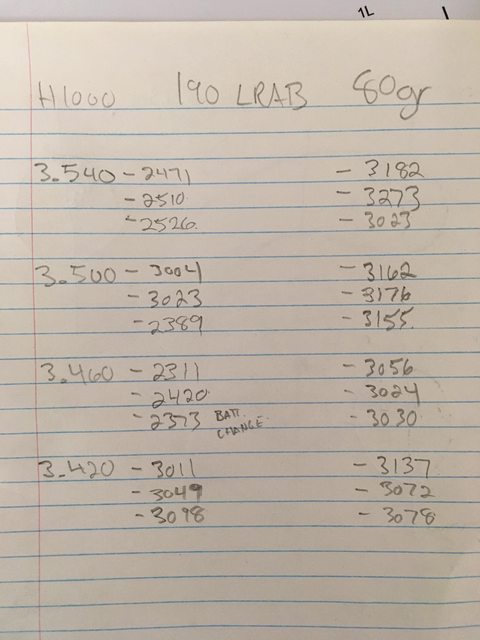 1L
H1000 190 LRAB 80gr
3.540 - 2471 - 3182
- 2510 - 3273
- 2526 - 3023
3.500 - 3004 - 3162
- 3023 - 3176
- 2389 - 3155
3.460 - 2311 - 3056
- 2420 - 3024
- 2373 BATT. CHANGE - 3030
3.420 - 3011 - 3137
- 3049 - 3072
- 3098 - 3078